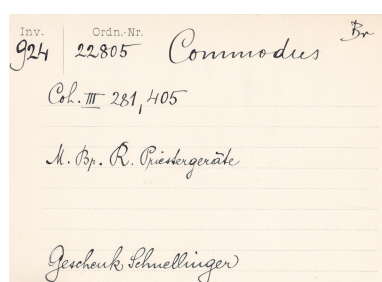 Inv. Ordn.-Nr. Br
924 22805 Commodus
Coh. III 281, 405
M. Br. R. Priestergeräte
Geschenk Schnellinger